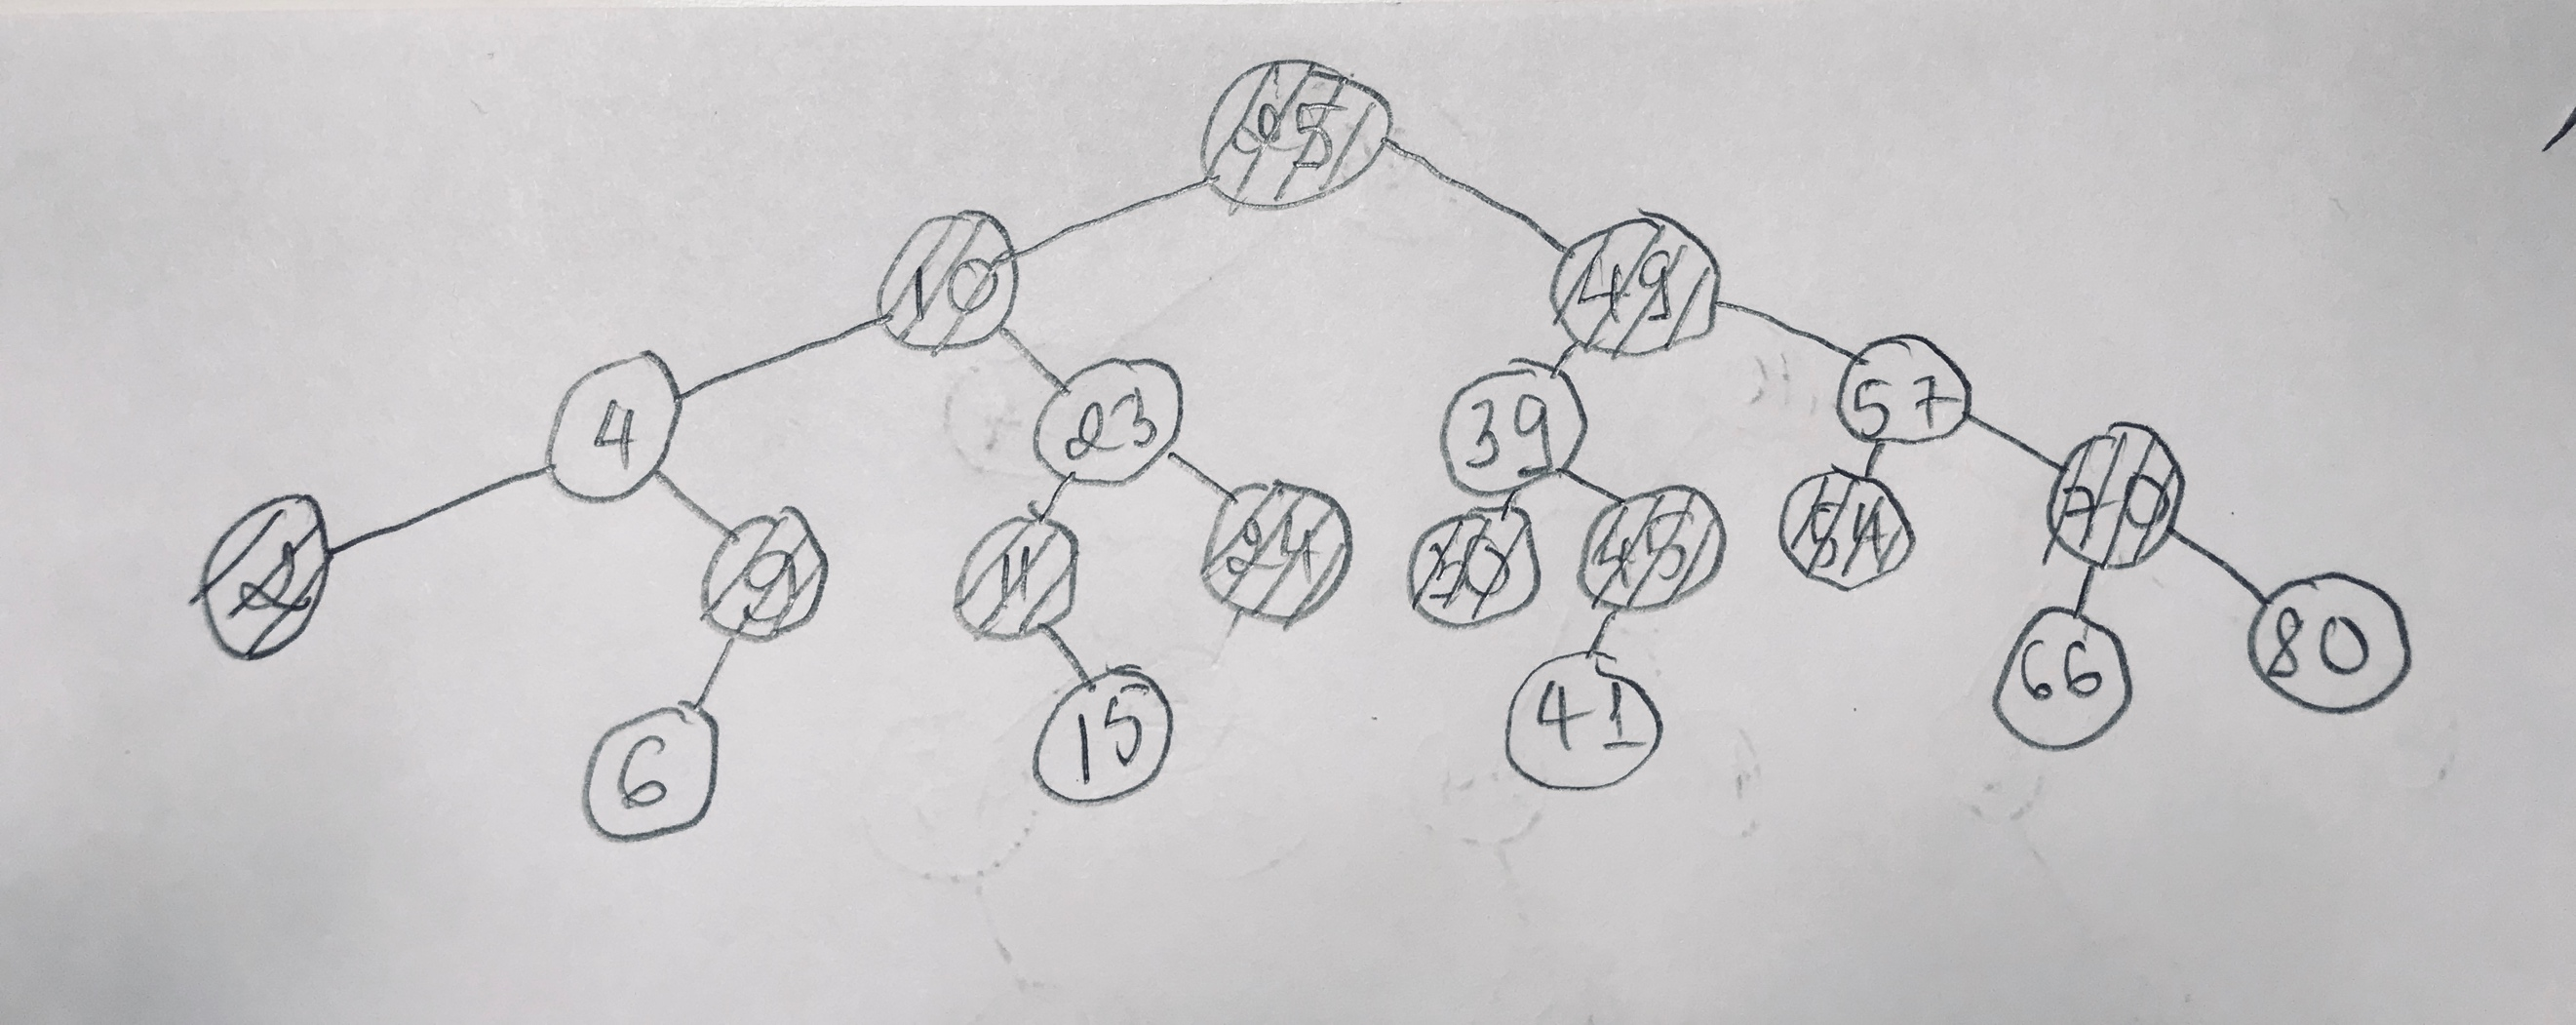 25
10 49
4 23 39 57
2 9 11 24 30 45 54 70
6 15 41 66 80